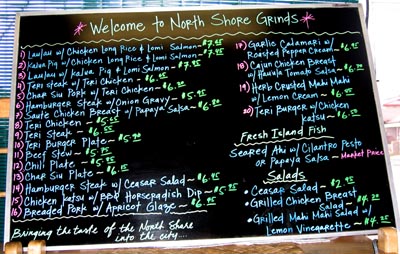 Welcome to North Shore Grinds
1) Laulau w/ Chicken Long Rice & Lomi Salmon ~ $7.95
2) Kalua Pig w/ Chicken Long Rice & Lomi Salmon ~ $7.95
3) Laulau w/ Kalua Pig & Lomi Salmon ~ $7.95
4) Teri Steak w/ Teri Chicken ~ $6.95
5) Char Siu Pork w/ Teri Chicken ~ $6.20
6) Hamburger Steak w/ Onion Gravy ~ $5.95
7) Saute Chicken Breast w/ Papaya Salsa ~ $6.20
8) Teri Chicken ~ $5.95
9) Teri Steak ~ $6.55
10) Teri Burger Plate ~ $5.70
11) Beef Stew ~ $5.95
12) Chili Plate ~ $5.95
13) Char Siu Plate ~ $6.15
14) Hamburger Steak w/ Ceasar Salad ~ $6.95
15) Chicken Katsu w/ BBQ Horseradish Dip ~ $5.95
16) Breaded Pork w/ Apricot Glaze ~ $6.95
Bringing the taste of the North Shore
into the city....
17) Garlic Calamari w/
Roasted Pepper Cream ~ $6.95
18) Cajun Chicken Breast
w/ Hauula Tomato Salsa ~ $6.20
19) Herb Crusted Mahi Mahi
w/ Lemon Cream ~ $6.95
20) Teri Burger w/ Chicken
Katsu ~ $6.20
Fresh Island Fish
Seared Ahi w/ Cilantro Pesto
or Papaya Salsa ~ Market Price
Salads
• Ceasar Salad ~ $2.95
• Grilled Chicken Breast
Salad ~ $4.20
• Grilled Mahi Mahi Salad w/
Lemon Vinegarette ~ $4.95